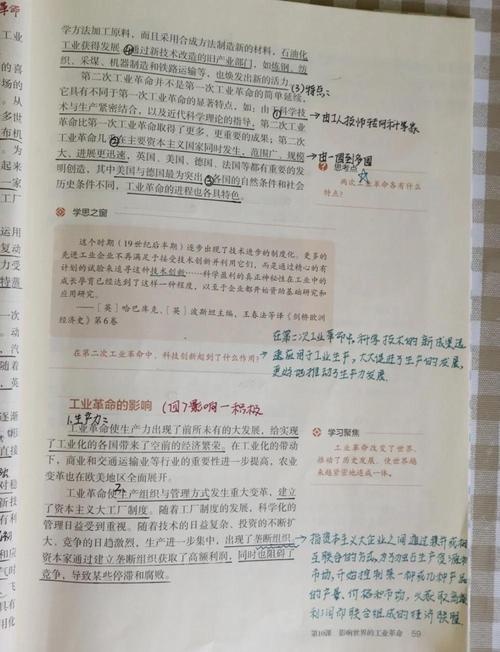 学方法加工原料，而且采用合成方法制造新的材料，石油化
工业获得发展；④通过新技术改造的旧产业部门，如炼钢、纺
织、采煤、机器制造和铁路运输等，也焕发出新的活力。
第二次工业革命并不是第一次工业革命的简单延续，(3)特点：
它具有不同于第一次工业革命的显著特点，如：由于科学技
术与生产紧密结合，以及近代科学理论的指导，第二次工业
革命比第一次工业革命取得了更多、更重要的成果；第二次
工业革命几乎在主要资本主义国家同时发生，范围广、规模
大、进展更迅速，英国、美国、德国、法国等都有重要的发
明创造，其中美国与德国最为突出；③各国的自然条件和社会
历史条件不同，工业革命的进程也各具特色。
→由工人技师转向科学家
→由一国到多国
思考点
两次工业革命各有什么
特点？
学思之窗
这个时期（19世纪后半期）逐步出现了技术进步的制度化。更多的
先进工业企业不再满足于接受技术创新并利用它们，而是通过精心的有
计划的试验来追寻这种技术创新……科学盈利的真正神秘性在工业中的
成长孕育已经达到了这样一种程度，以至于企业都开始资助基础研究和
应用研究。
——［英］哈巴库克、［英］波斯坦主编，王春法等译《剑桥欧洲
经济史》第6卷
在第二次工业革命中，科技创新起到了什么作用？
在第二次工业革命中，科学技术的新成果迅
速应用于工业生产，大大促进了生产的发展，
更好地推动了生产力发展。
工业革命的影响 (四)影响—积极
1.生产力：
工业革命使生产力出现了前所未有的大发展，给实现
了工业化的各国带来了空前的经济繁荣。在工业化的带动
下，商业和交通运输业等行业的重要性进一步提高，农业
变革也在欧美地区全面展开。
学习聚焦
工业革命改变了世界，
推动了历史发展，使世界越
来越紧密地连成一体。
工业革命使生产组织与管理方式发生重大变革，建立
了资本主义大工厂制度。随着工厂制度的发展，科学化的
管理日益受到重视。随着技术的日益复杂、投资的不断扩
大、竞争的日趋激烈，生产进一步集中，出现了垄断组织。
资本家通过建立垄断组织获取了高额利润，同时也阻碍了
竞争，导致某些停滞和腐败。
指资本主义大企业之间通过
互联合的方式，
市场，开始控制某一种或几种产品
的产量、价格和市场，以获取高额
利润而联合组成的经济联盟
第10课 影响世界的工业革命 59